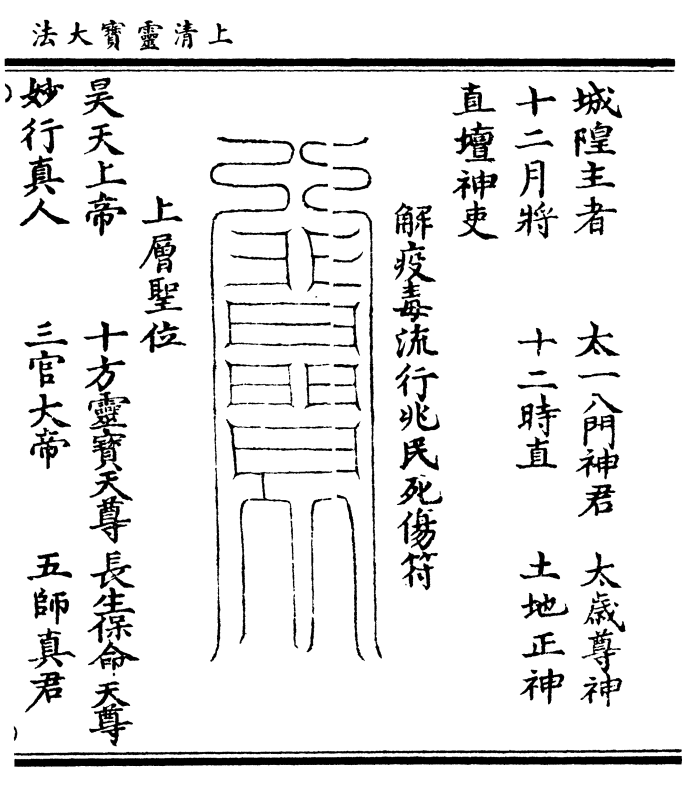 上清靈寶大法
城隍主者 太一八門神君 太歲尊神
十二月將 十二時直 土地正神
直壇神吏
解疫毒流行兆民死傷符
上層聖位
昊天上帝 十方靈寶天尊 長生保命天尊
妙行真人 三官大帝 五師真君